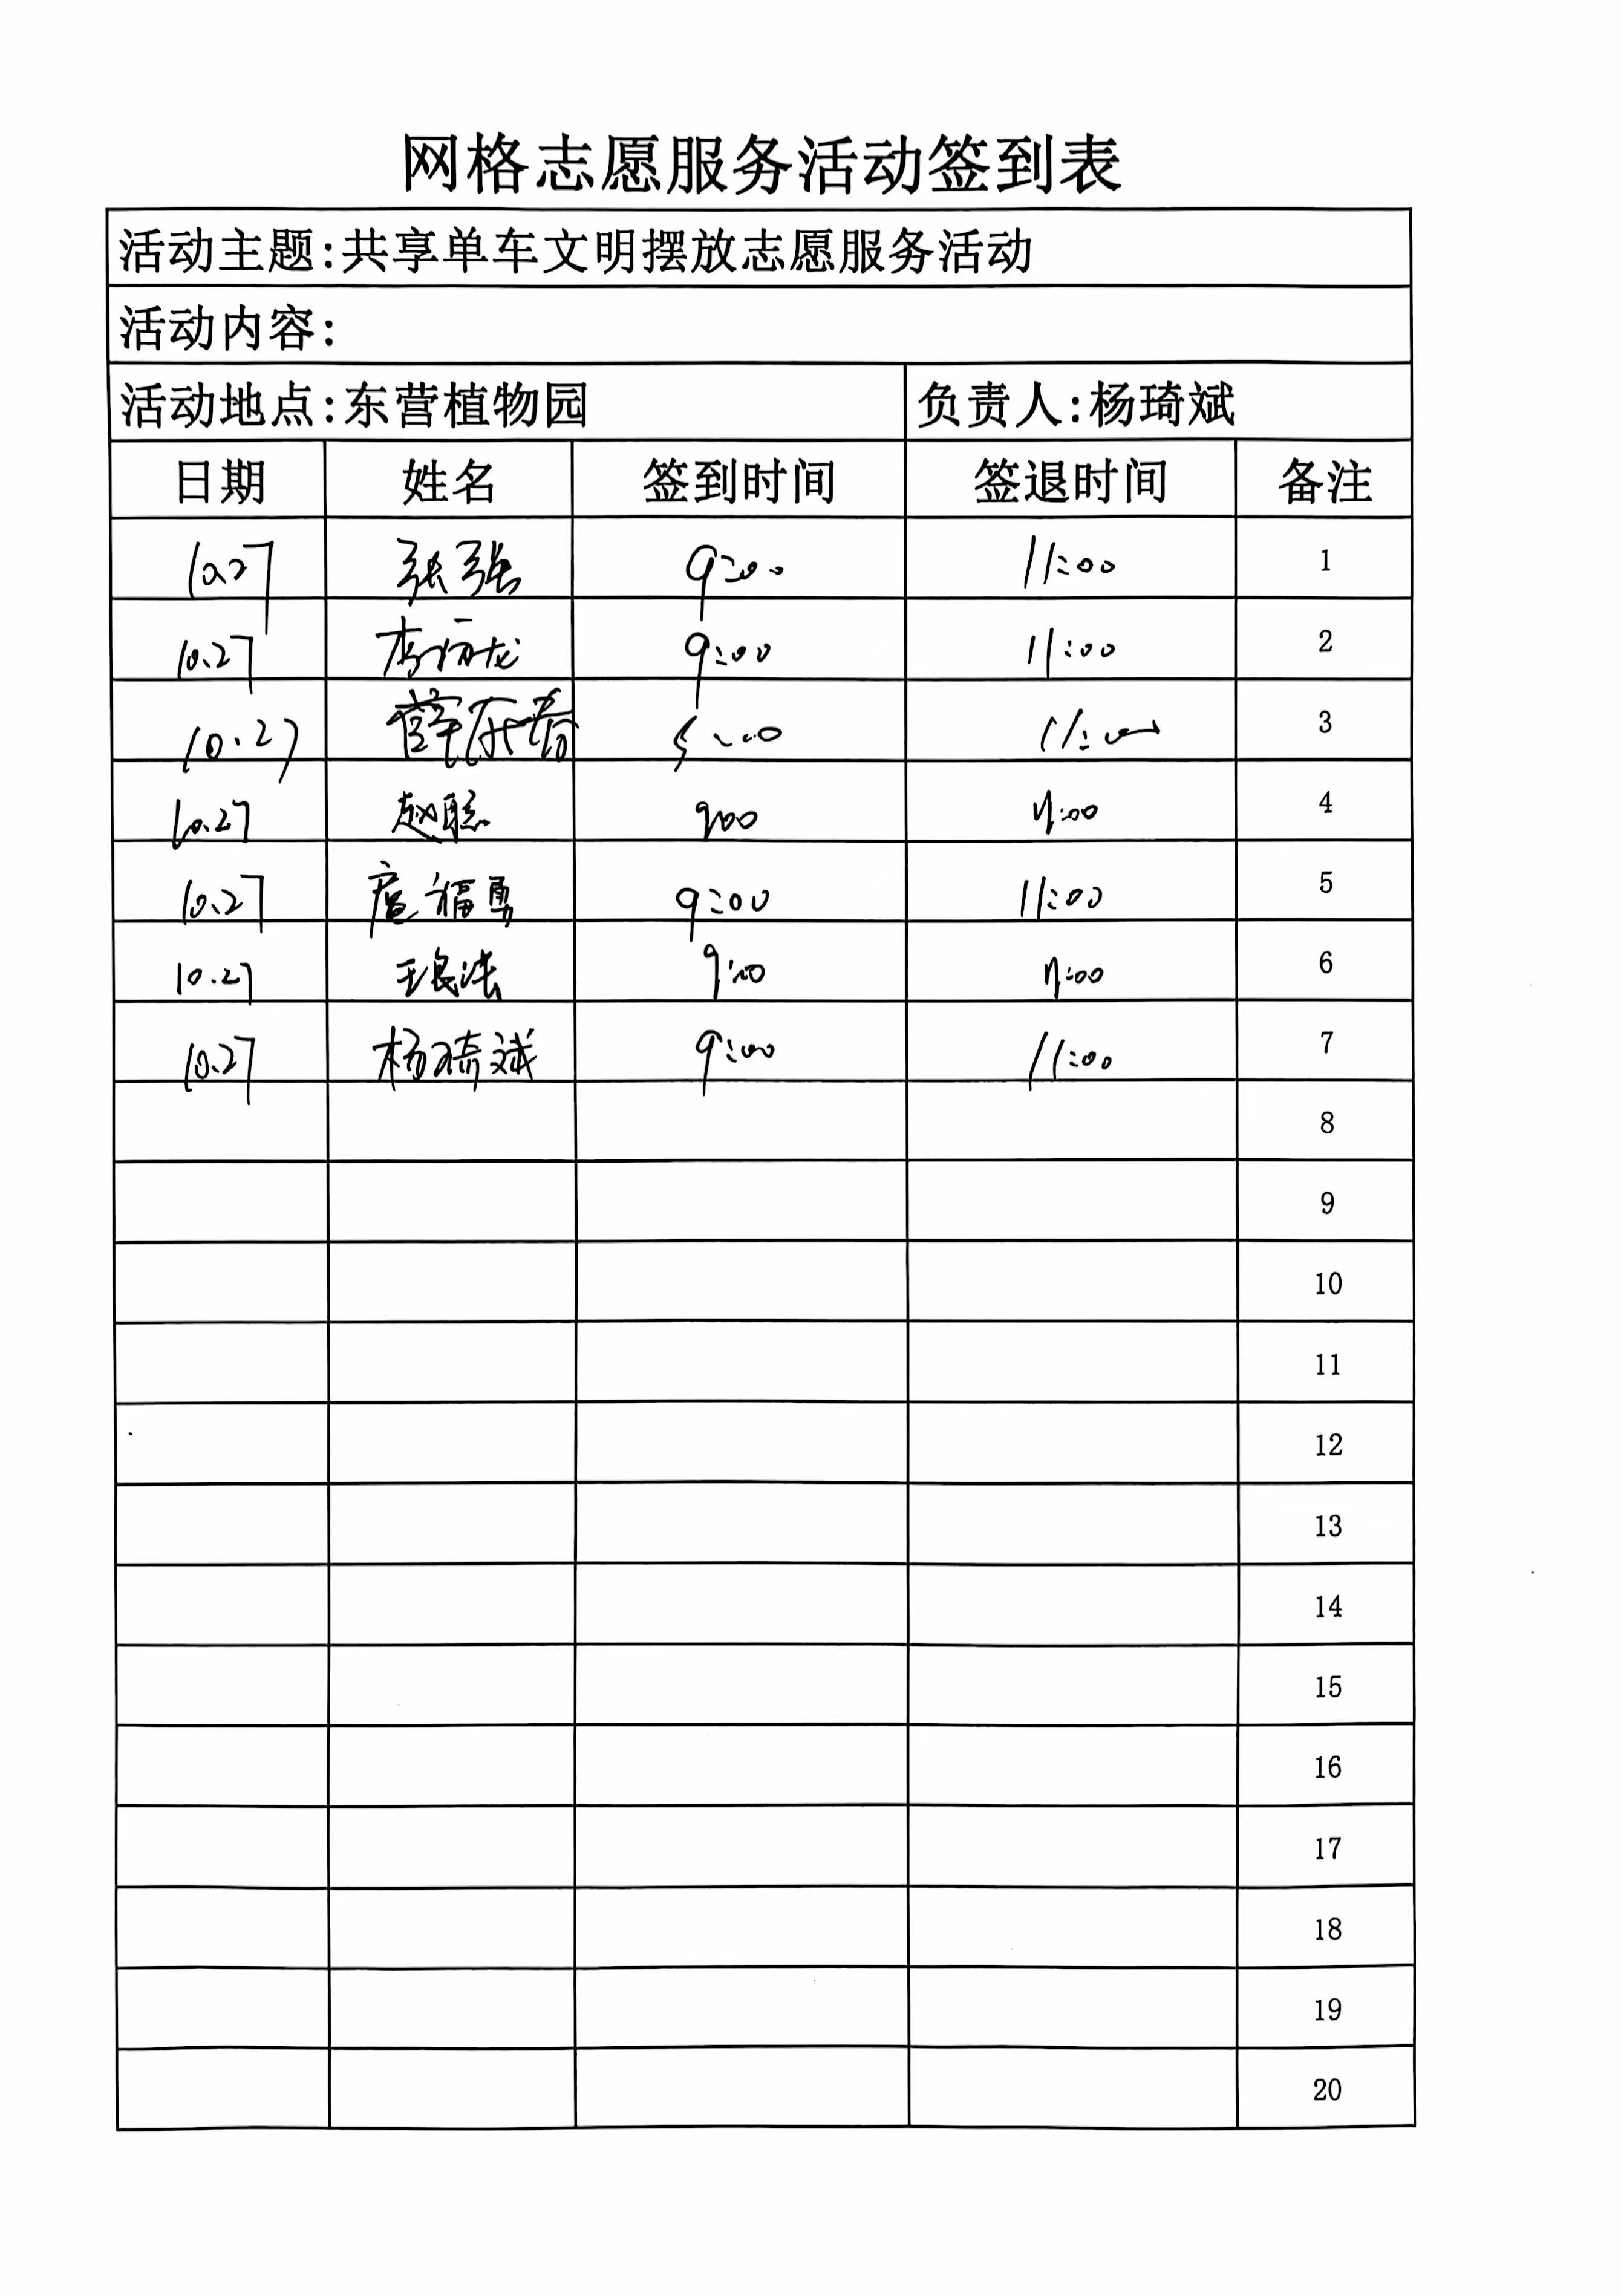 网格志愿服务活动签到表
活动主题:共享单车文明摆放志愿服务活动
活动内容:
活动地点:东营植物园 负责人:杨琦斌
日期 姓名 签到时间 签退时间 备注
10.27 张强 9:00 11:00 1
10.27 9:00 11:00 2
10.27 11:00 3
10.27 赵聪 900 11:00 4
10.27 扈福勇 9:00 11:00 5
10.27 王良法 9:00 11:00 6
10.27 杨琦斌 9:00 11:00 7
8
9
10
11
12
13
14
15
16
17
18
19
20